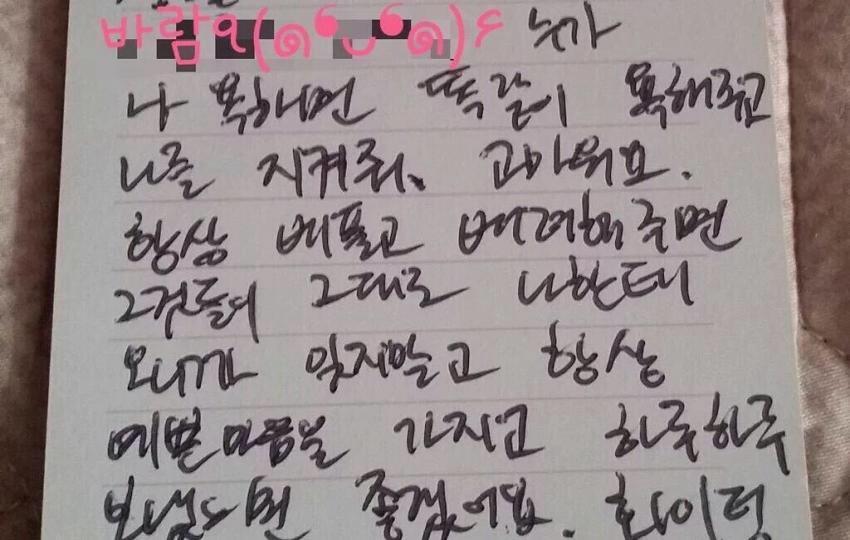 바람이(๑❛ᴗ❛๑)۶ 누가
나 욕하면 똑같이 욕해주고
나를 지켜줘. 고마워요.
항상 베풀고 배려해주면
그것들이 그대로 나한테
오니까 잊지말고 항상
예쁜 마음을 가지고 하루하루
보냈으면 좋겠어요. 화이팅